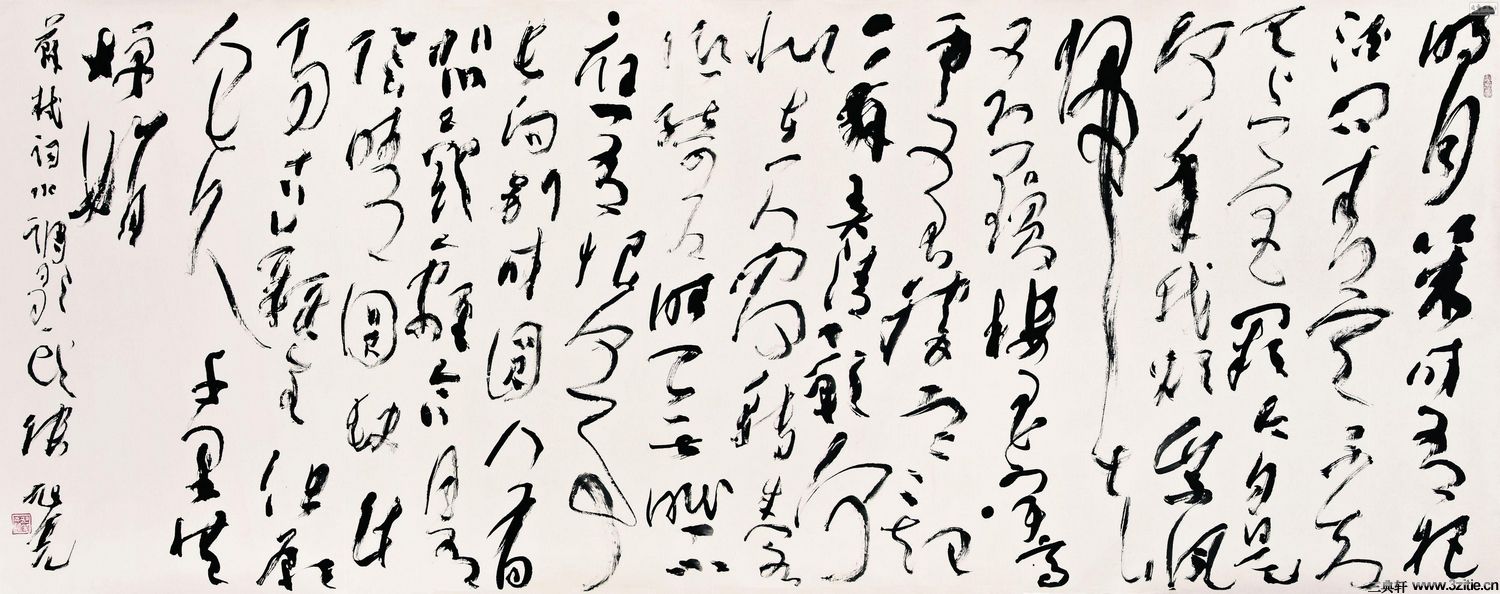 明月幾時有把
酒問青天不知
天上宮闕今夕是
何年我欲乘風
歸去
又恐瓊樓玉宇高
處不勝寒起
舞弄清影何
似在人間轉朱閣
低綺戶照無眠不
應有恨何事
長向別時圓人有
悲歡離合月有
陰晴圓缺此
事古難全但願
人長久千里共
嬋娟
蘇軾詞水調歌頭 張旭光
三典轩 www.3zitie.cn